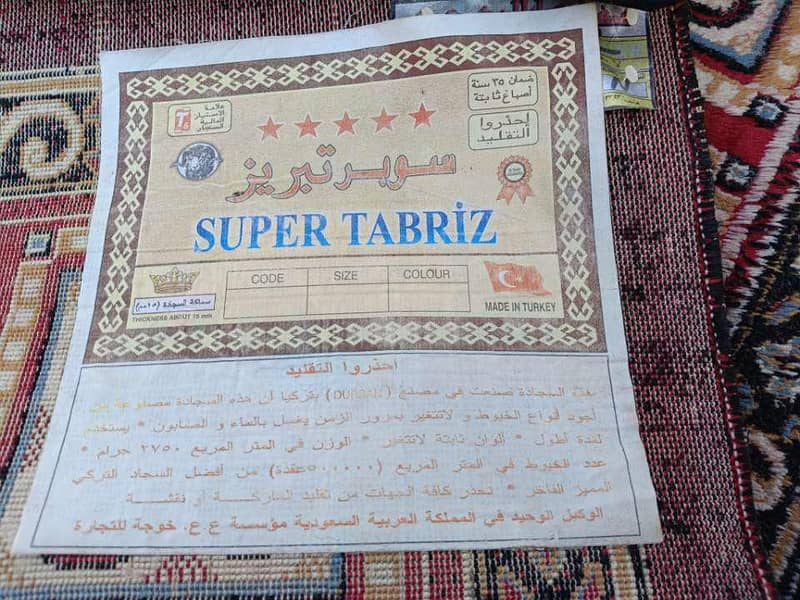 علامة
الامتياز
العالمية
للسجاد
ضمان ٢٥ سنة
أصباغ ثابتة
إحذروا
التقليد
سوبر تبريز
SUPER TABRİZ
CODE SIZE COLOUR
سماكة السجادة (١٥مم)
THICKNESS ABOUT 15 mm
MADE IN TURKEY
احذروا التقليد
هذه السجادة صنعت في مصنع بتركيا ان هذه السجادة مصنوعة من
أجود أنواع الخيوط و لاتتغير بمرور الزمن يغسل بالماء و الصابون * يستخدم
لمدة أطول * ألوان ثابتة لاتتغير * الوزن في المتر المربع ٢٧٥٠ جرام *
عدد الخيوط في المتر المربع (٥٠٠٠٠٠عقدة) من أفضل السجاد التركي
المميز الفاخر * نحذر كافة الجهات من تقليد الماركة أو نقشة
الوكيل الوحيد في المملكة العربية السعودية مؤسسة ع.ع. خوجة للتجارة